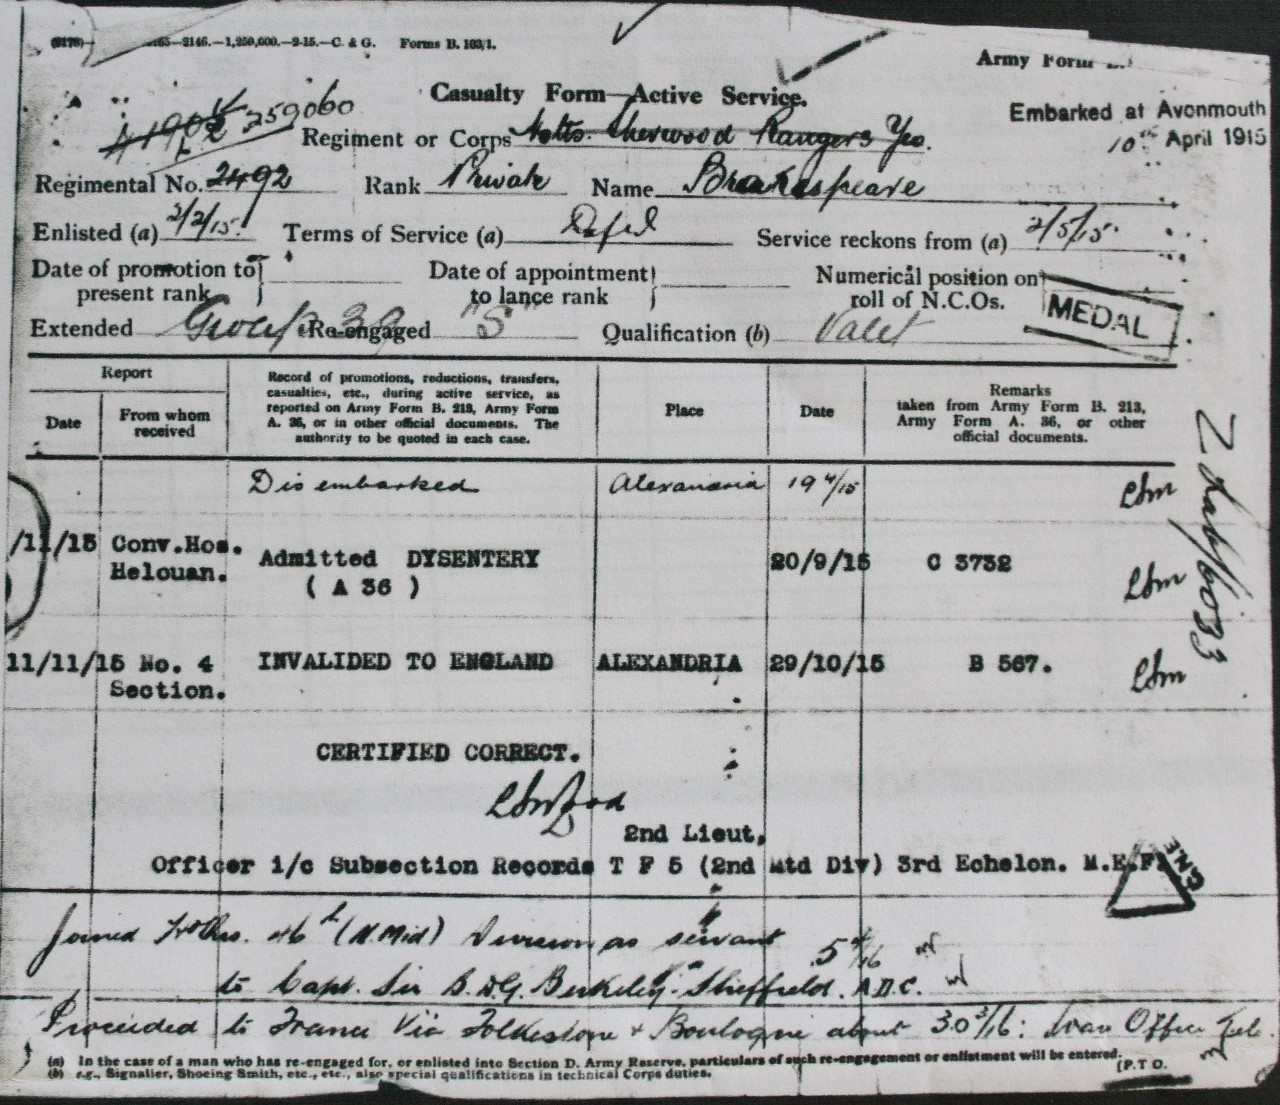 2146.—1,250,000.—2-15.—C. & G. Forms B. 103/1.
Army Form
Casualty Form—Active Service.
Embarked at Avonmouth
10th April 1915
259060
Regiment or Corps Notts. Sherwood Rangers Yeo.
Regimental No. 2492 Rank Private Name Brakespeare
Enlisted (a) 2/2/15. Terms of Service (a) Service reckons from (a) 2/5/15.
Date of promotion to present rank } Date of appointment to lance rank } Numerical position on roll of N.C.Os.
MEDAL
Extended Group 39 Re-engaged "S" Qualification (b) Valet
Report
Date
From whom received
Record of promotions, reductions, transfers, casualties, etc., during active service, as reported on Army Form B. 213, Army Form A. 36, or in other official documents. The authority to be quoted in each case.
Place
Date
Remarks
taken from Army Form B. 213, Army Form A. 36, or other official documents.
Disembarked Alexandria 19 4/15
/11/15 Conv.Hos. Helouan. Admitted DYSENTERY ( A 36 ) 20/9/15 C 3732
11/11/15 No. 4 Section. INVALIDED TO ENGLAND ALEXANDRIA 29/10/15 B 567.
6033
CERTIFIED CORRECT.
2nd Lieut,
Officer i/c Subsection Records T F 5 (2nd Mtd Div) 3rd Echelon. M.E.F.
Joined 46th (N. Mid) Division as servant 5 4/16
to Capt. Sir B.D.G. Berkeley-Sheffield. A.D.C.
Proceeded to France via Folkestone & Boulogne about 30 3/16: War Office
(a) In the case of a man who has re-engaged for, or enlisted into Section D. Army Reserve, particulars of such re-engagement or enlistment will be entered.
(b) e.g., Signaller, Shoeing Smith, etc., etc., also special qualifications in technical Corps duties.
[P.T O.